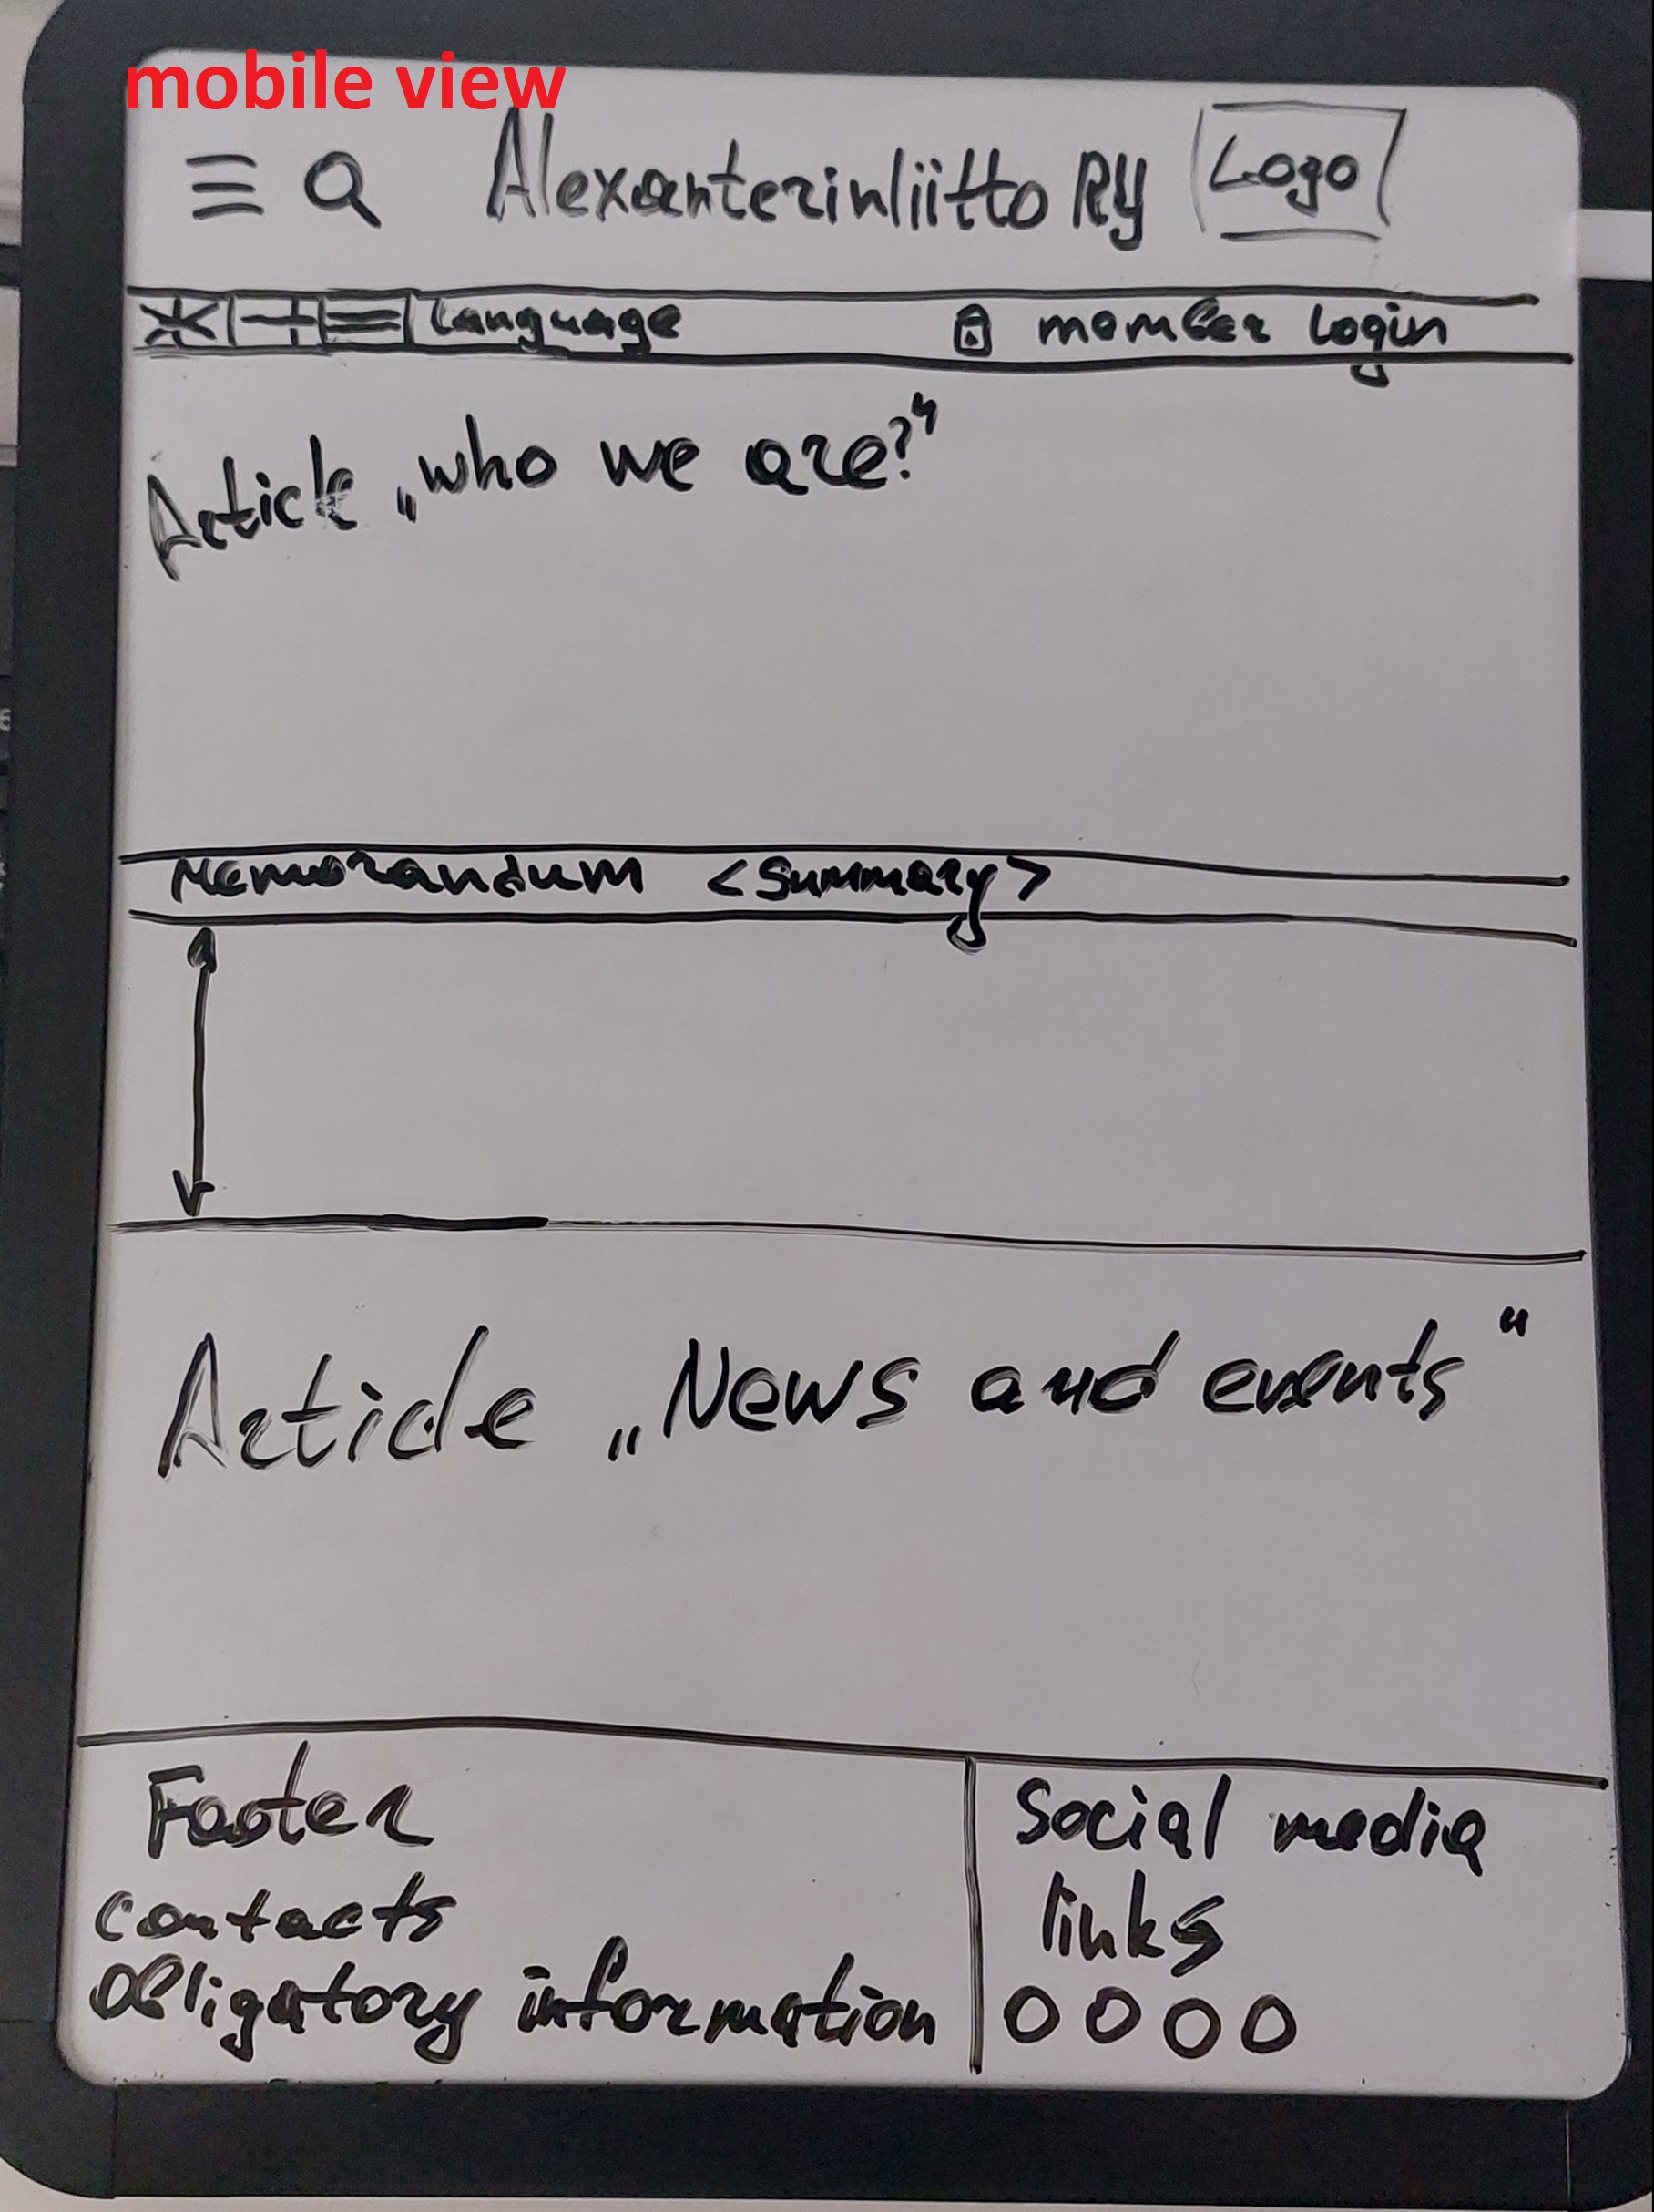 mobile view
Alexanterinliitto RY Logo
Language member login
Article „who we are?"
Memorandum <summary>
Article „News and events"
Footer
contacts
obligatory information
Social media
links